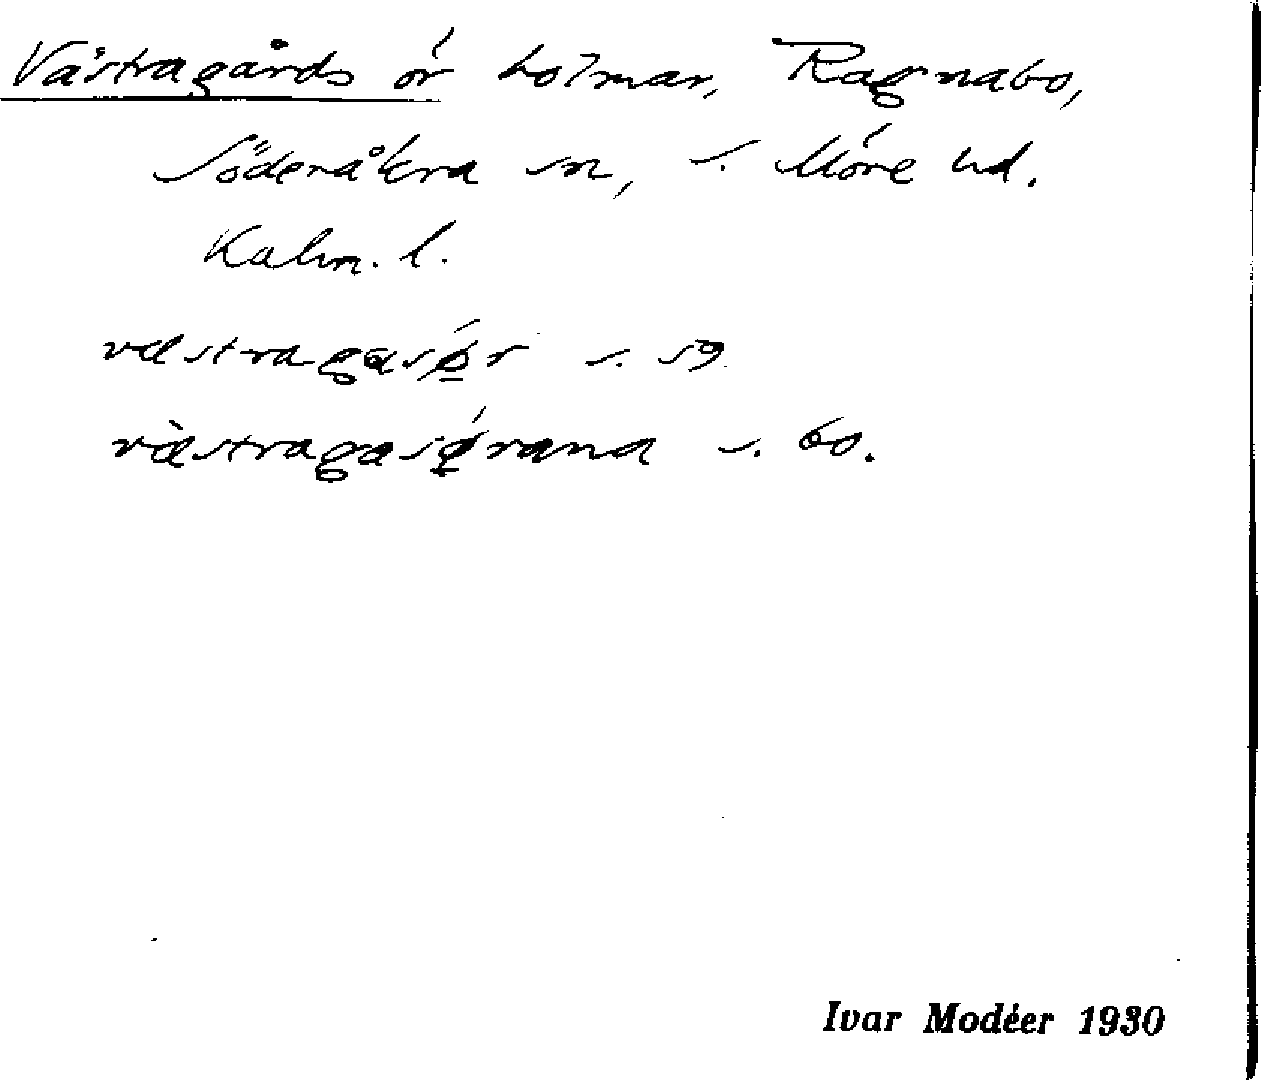 Västragårds ör holmar, Ragnabo,
Söderåkra sn, S. Möre hd.
Kalm. l.
västragasǿr s. 59.
vàstragasǿrana s. 60.
Ivar Modéer 1930